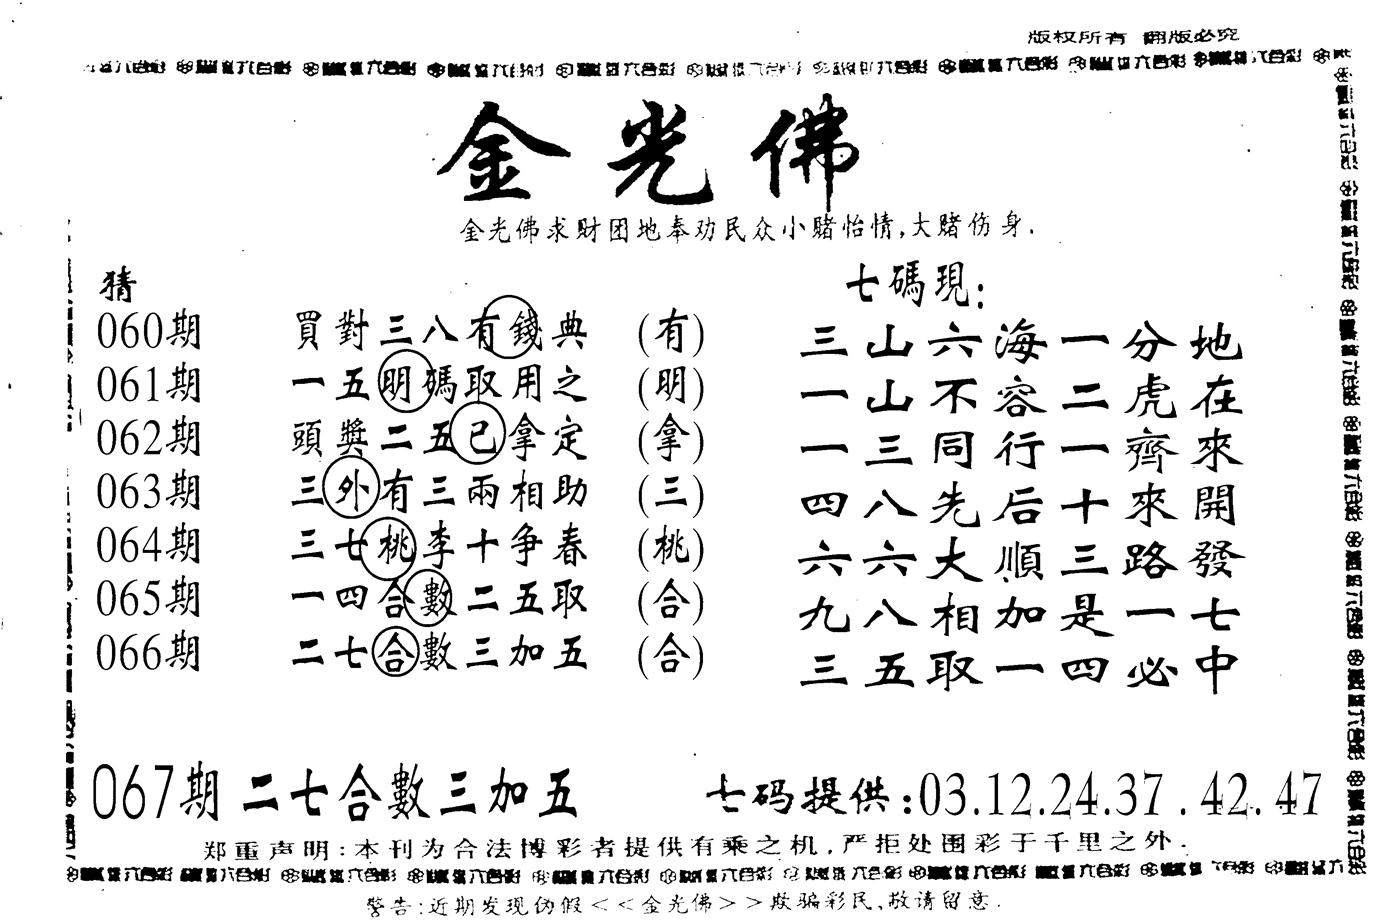 版权所有 翻版必究
金光佛
金光佛求财团地奉劝民众小赌怡情,大赌伤身.
猜
060期 買對三八有錢典 (有)
061期 一五明碼取用之 (明)
062期 頭獎二五已拿定 (拿)
063期 三外有三兩相助 (三)
064期 三七桃李十争春 (桃)
065期 一四合數二五取 (合)
066期 二七合數三加五 (合)
七碼現:
三山六海一分地
一山不容二虎在
一三同行一齊來
四八先后十來開
六六大順三路發
九八相加是一七
三五取一四必中
067期 二七合數三加五 七码提供:03.12.24.37.42.47
郑重声明:本刊为合法博彩者提供有乘之机,严拒处圈彩于千里之外.
警告:近期发现伪假<<金光佛>>欺骗彩民,敬请留意.